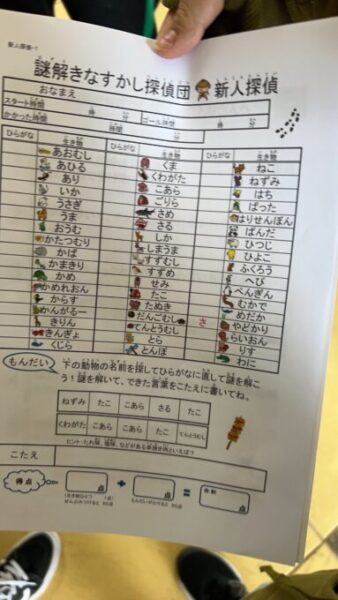 新人探偵-1
謎解きなすかし探偵団 新人探偵
おなまえ
スタート時間 時 分 ゴール時間 時 分
かかった時間 時間 分
ひらがな 生き物 ひらがな 生き物 ひらがな 生き物
あおむし くま ねこ
あひる くわがた ねずみ
あり こあら はち
いか ごりら ばった
うさぎ さめ はりせんぼん
うま さる ぱんだ
おうむ しか ひつじ
かたつむり しまうま ひよこ
かば すずむし ふくろう
かまきり すずめ へび
かめ せみ ぺんぎん
かめれおん たこ むかで
からす たぬき めだか
かんがるー だんごむし やどかり
きりん てんとうむし さ らいおん
きんぎょ とら りす
くじら とんぼ わに
もんだい 下の動物の名前を探してひらがなに直して謎を解こ
う！謎を解いて、できた言葉をこたえに書いてね。
ねずみ たこ こあら さる たこ
くわがた こあら こあら たこ てんとうむし
ヒント：たれ味、塩味、などがある串焼き肉といえば？
こたえ
得点 点 + 点 = 合計 点